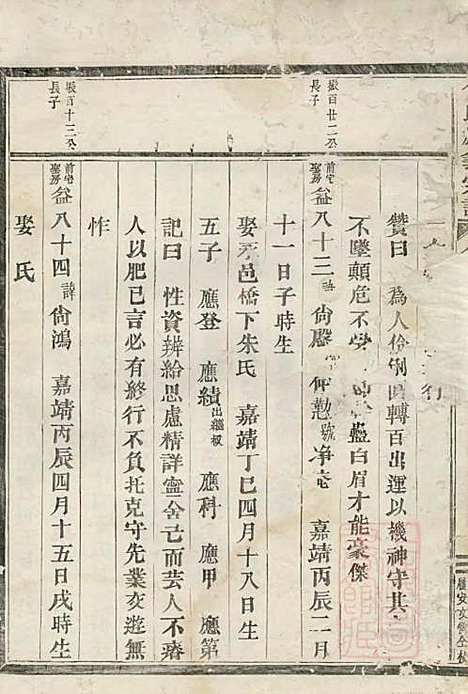 贊曰 為人伶俐 轉百出運以機神守其
不墜顛危不 藍白眉才能豪傑
振百廿二公
長子
前宅
聖房
益八十三 尙 仲勳號淨 嘉靖丙辰二月
十一日子時生
娶 邑橋下朱氏 嘉靖丁巳四月十八日生
五子 應登 應績出繼 應科 應甲 應第
記曰 性資辨給思慮精詳寧舍己而芸人不瘠
人以肥已言必有終行不負托克守先業交遊無
怍
振百十三公
長子
前宅
聖房
益八十四諱尙鴻 嘉靖丙辰四月十五日戌時生
娶氏